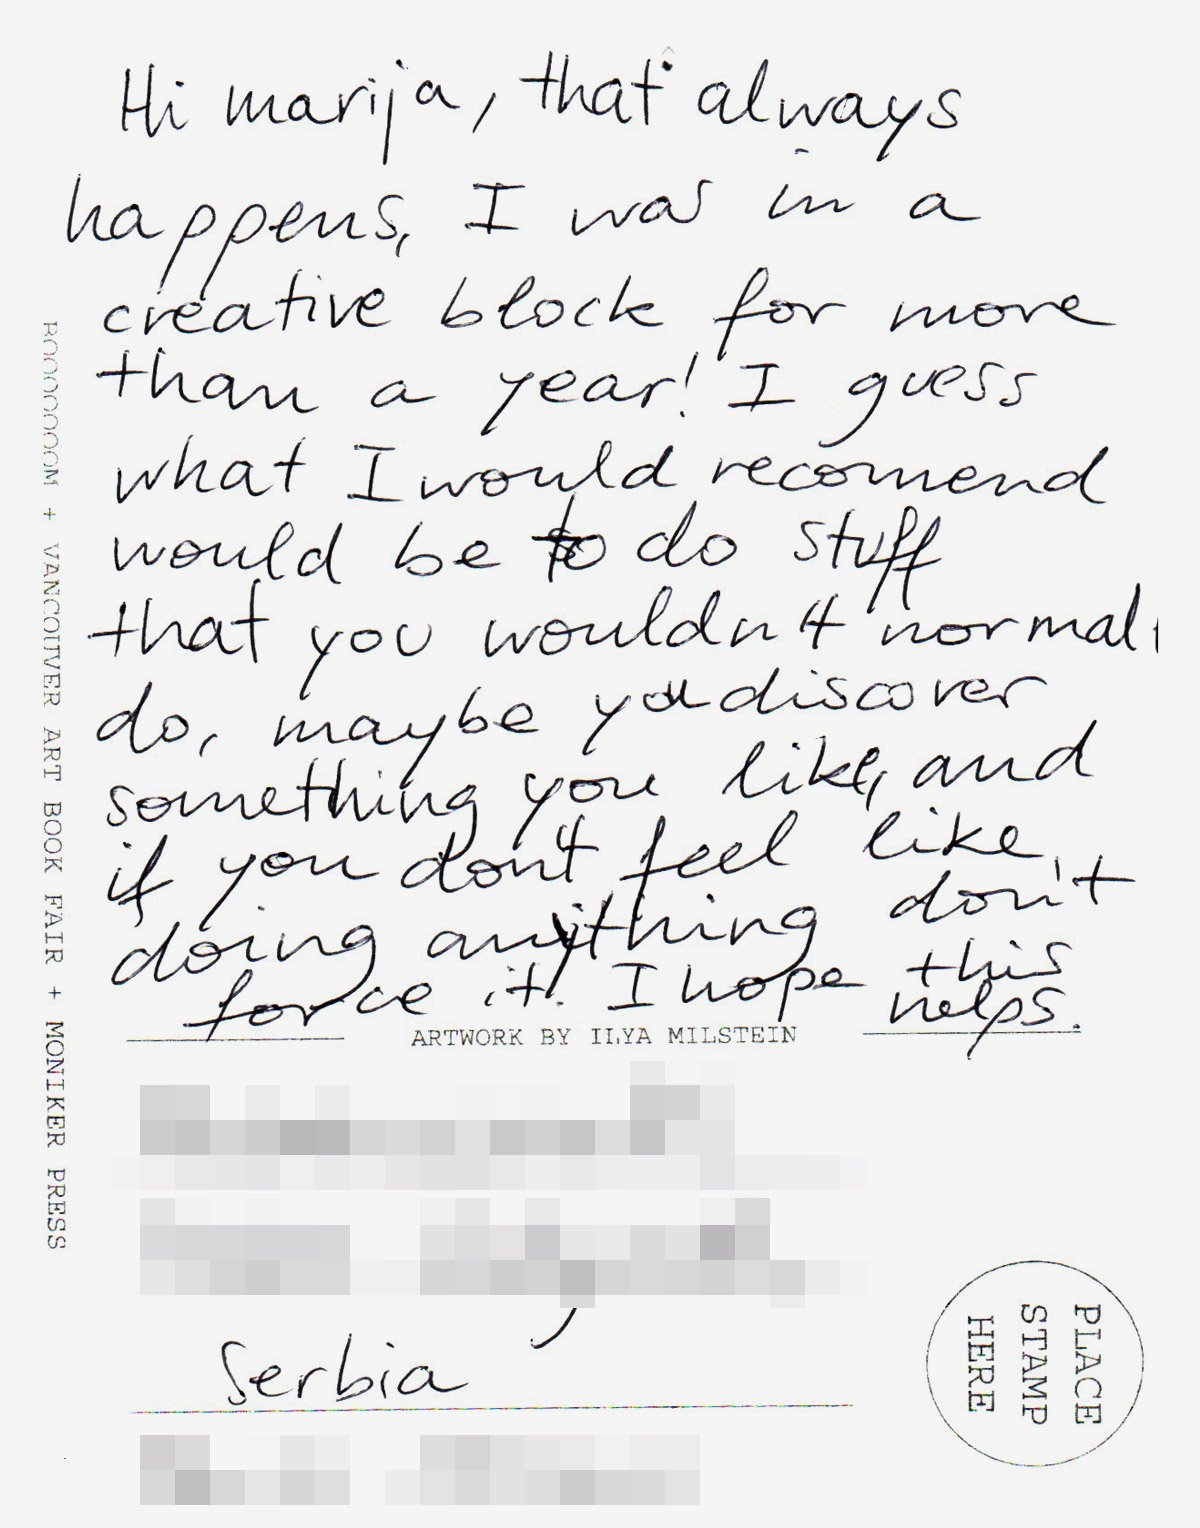 Hi marija, that always
happens, I was in a
creative block for more
than a year! I guess
what I would recomend
would be to do stuff
that you wouldn't normal
do, maybe you discover
something you like, and
if you don't feel like
doing anything don't
force it. I hope this
helps.
ARTWORK BY ILYA MILSTEIN
Serbia
PLACE
STAMP
HERE
BOOOOOOOM + VANCOUVER ART BOOK FAIR + MONIKER PRESS